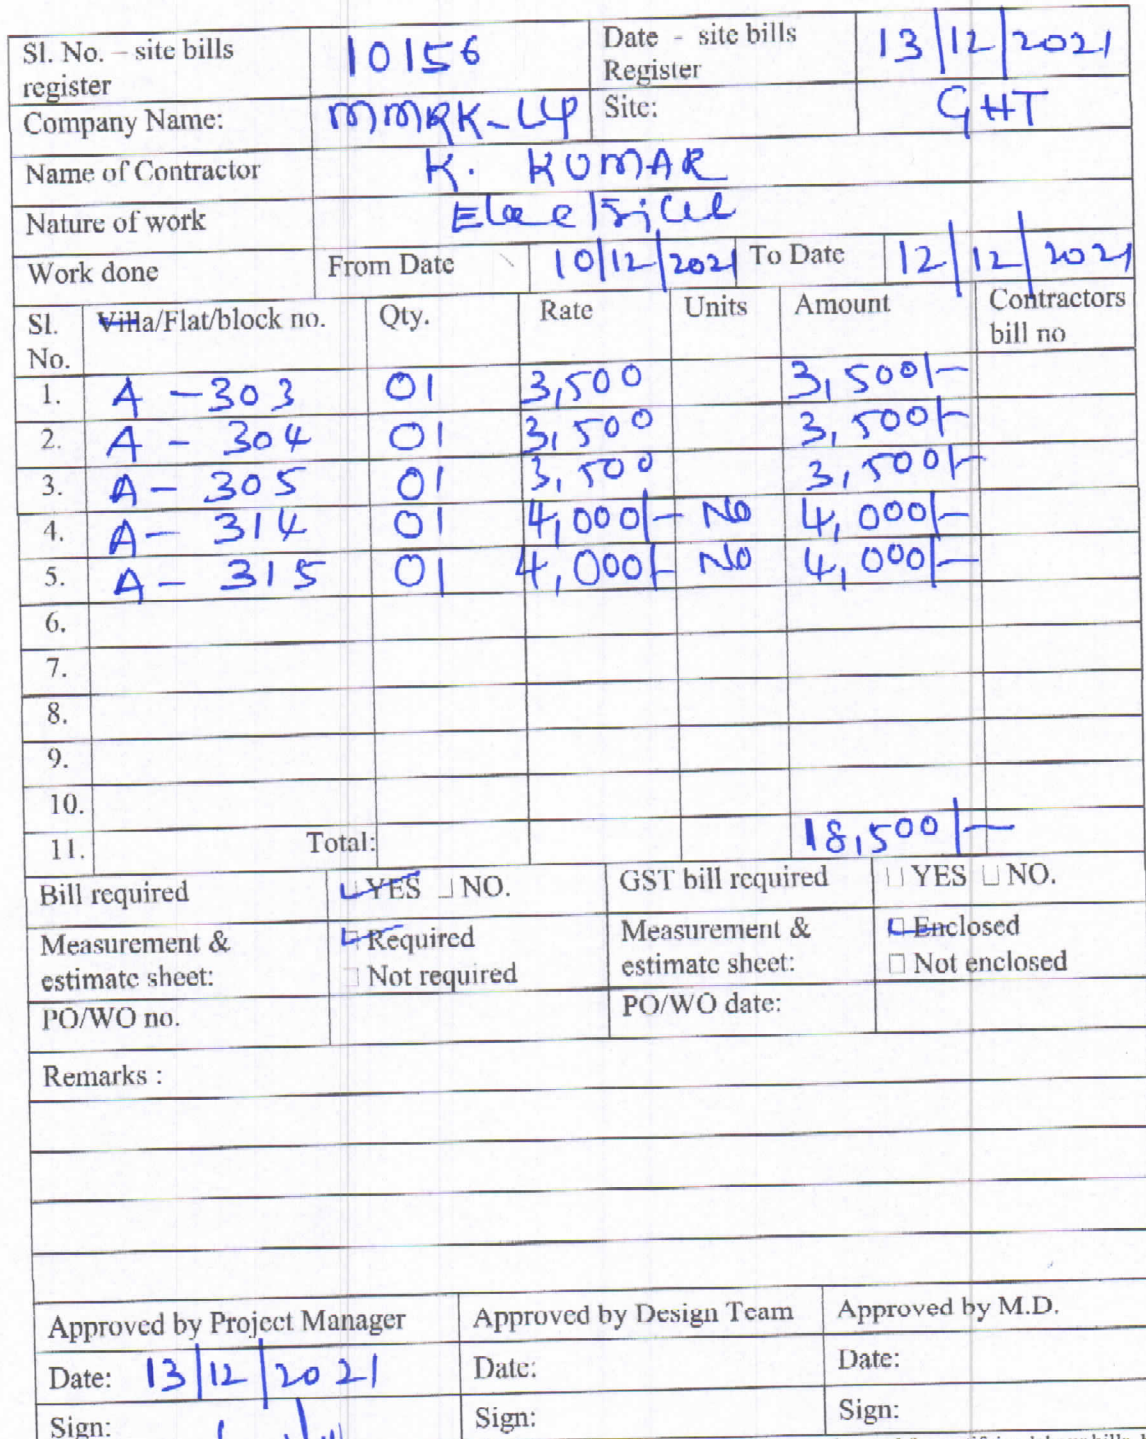 Sl. No. – site bills register 10156 Date - site bills Register 13/12/2021
Company Name: MMRK-LLP Site: GHT
Name of Contractor K. KUMAR
Nature of work Electrical
Work done From Date 10/12/2021 To Date 12/12/2021
Sl. No. Villa/Flat/block no. Qty. Rate Units Amount Contractors bill no
1. A - 303 01 3,500 3,500/-
2. A - 304 01 3,500 3,500/-
3. A - 305 01 3,500 3,500/-
4. A - 314 01 4,000/- No 4,000/-
5. A - 315 01 4,000/- No 4,000/-
6.
7.
8.
9.
10.
11. Total: 18,500/-
Bill required YES NO. GST bill required YES NO.
Measurement & estimate sheet: Required Measurement & estimate sheet: Enclosed
Not required Not enclosed
PO/WO no. PO/WO date:
Remarks :
Approved by Project Manager Approved by Design Team Approved by M.D.
Date: 13/12/2021 Date: Date:
Sign: Sign: Sign: